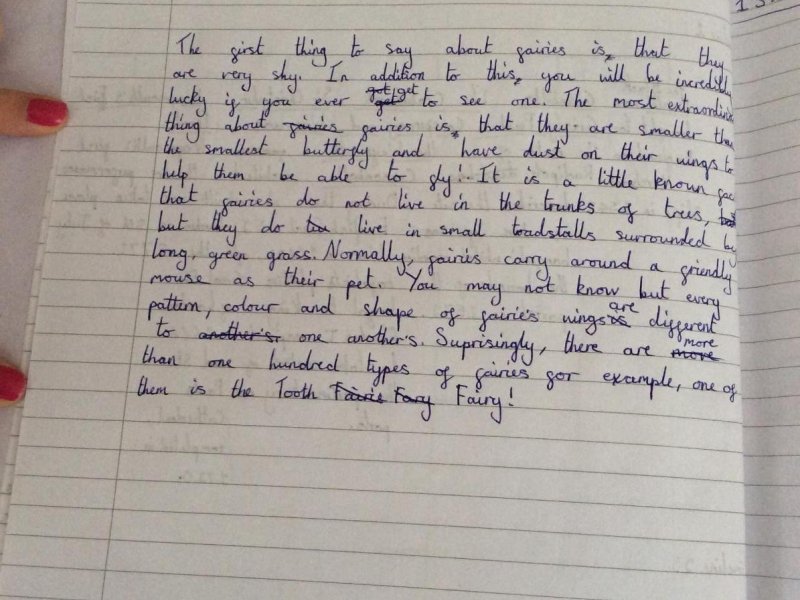 The first thing to say about fairies is, that they
are very shy. In addition to this, you will be incredibly
lucky if you ever get to see one. The most extraordin
thing about fairies fairies is, that they are smaller than
the smallest butterfly and have dust on their wings to
help them be able to fly! It is a little known fac
that fairies do not live in the trunks of trees, but
but they do live in small toadstalls surrounded by
long, green grass. Normally, fairies carry around a friendly
mouse as their pet. You may not know but every
pattern, colour and shape of fairie's wings are different
to another's. one another's. Suprisingly, there are more
than one hundred types of fairies for example, one of
them is the Tooth Fairie Fary Fairy!